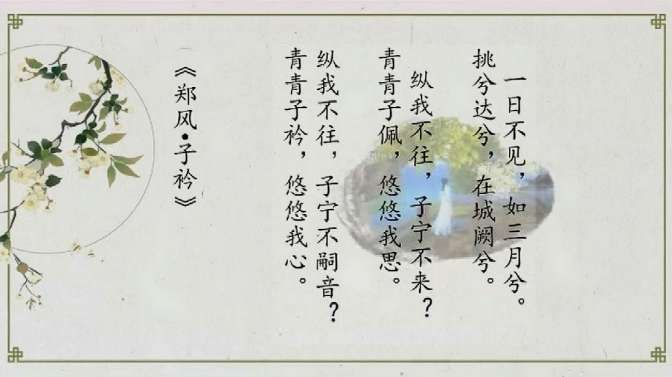 《郑风•子衿》
青青子衿，悠悠我心。
纵我不往，子宁不嗣音？
青青子佩，悠悠我思。
纵我不往，子宁不来？
挑兮达兮，在城阙兮。
一日不见，如三月兮。